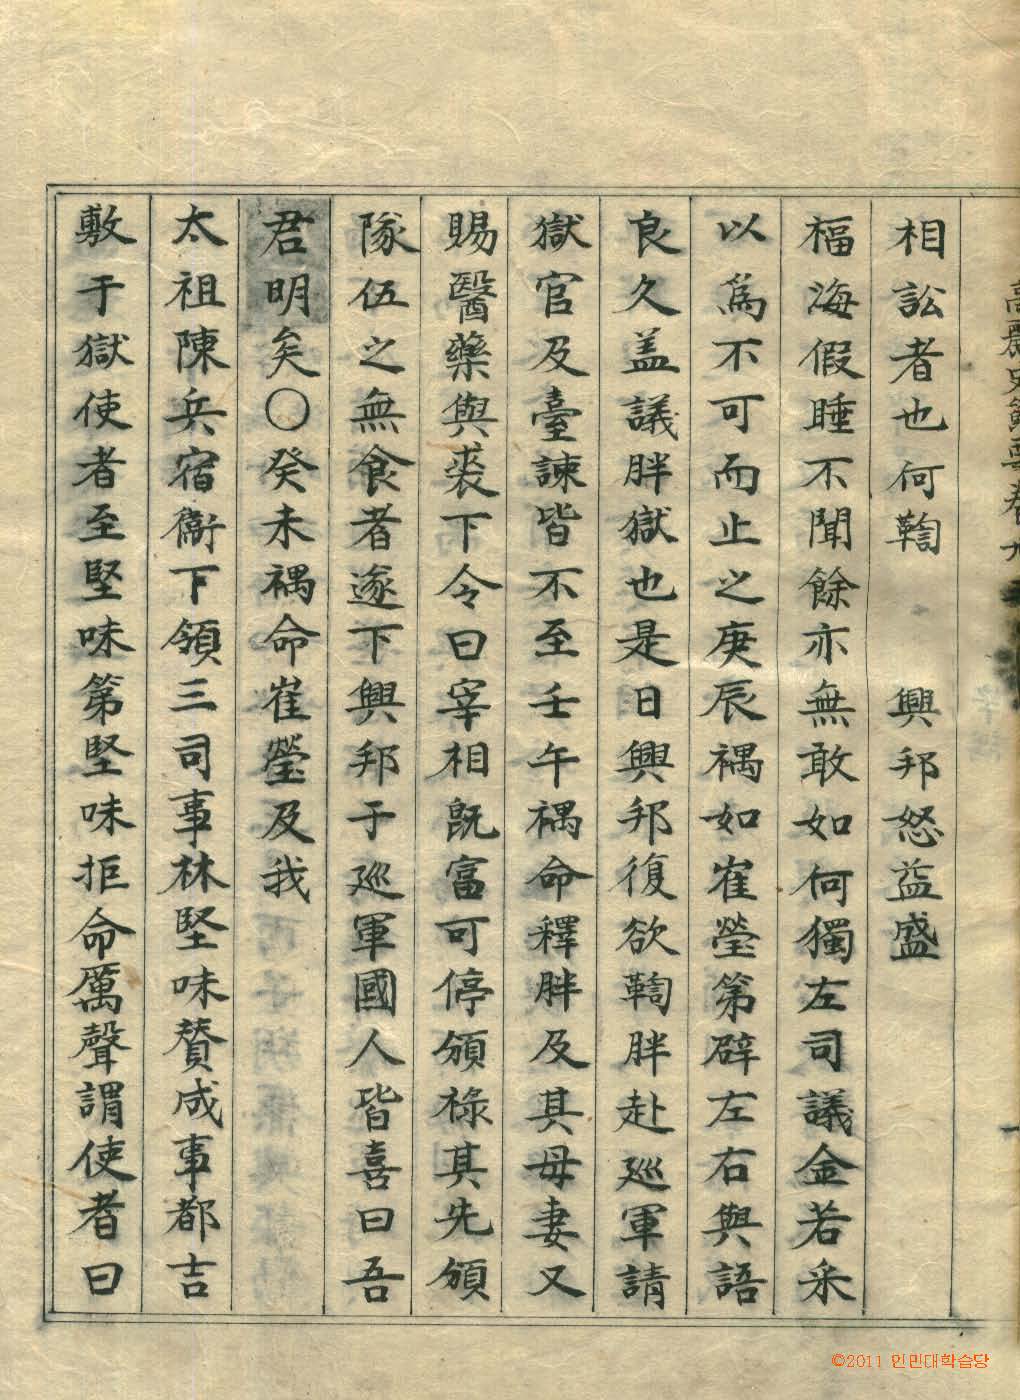 相訟者也何鞫 興邦怒益盛
福海假睡不聞餘亦無敢如何獨左司議金若采
以爲不可而止之庚辰禑如崔瑩第辟左右與語
良久盖議胖獄也是日興邦復欲鞫胖赴巡軍請
獄官及臺諫皆不至壬午禑命釋胖及其母妻又
賜醫藥與裘下令曰宰相旣富可停頒祿其先頒
隊伍之無食者遂下興邦于巡軍國人皆喜曰吾
君明矣○癸未禑命崔瑩及我
太祖陳兵宿衛下領三司事林堅味贊成事都吉
敷于獄使者至堅味第堅味拒命厲聲謂使者曰
©2011 인민대학습당